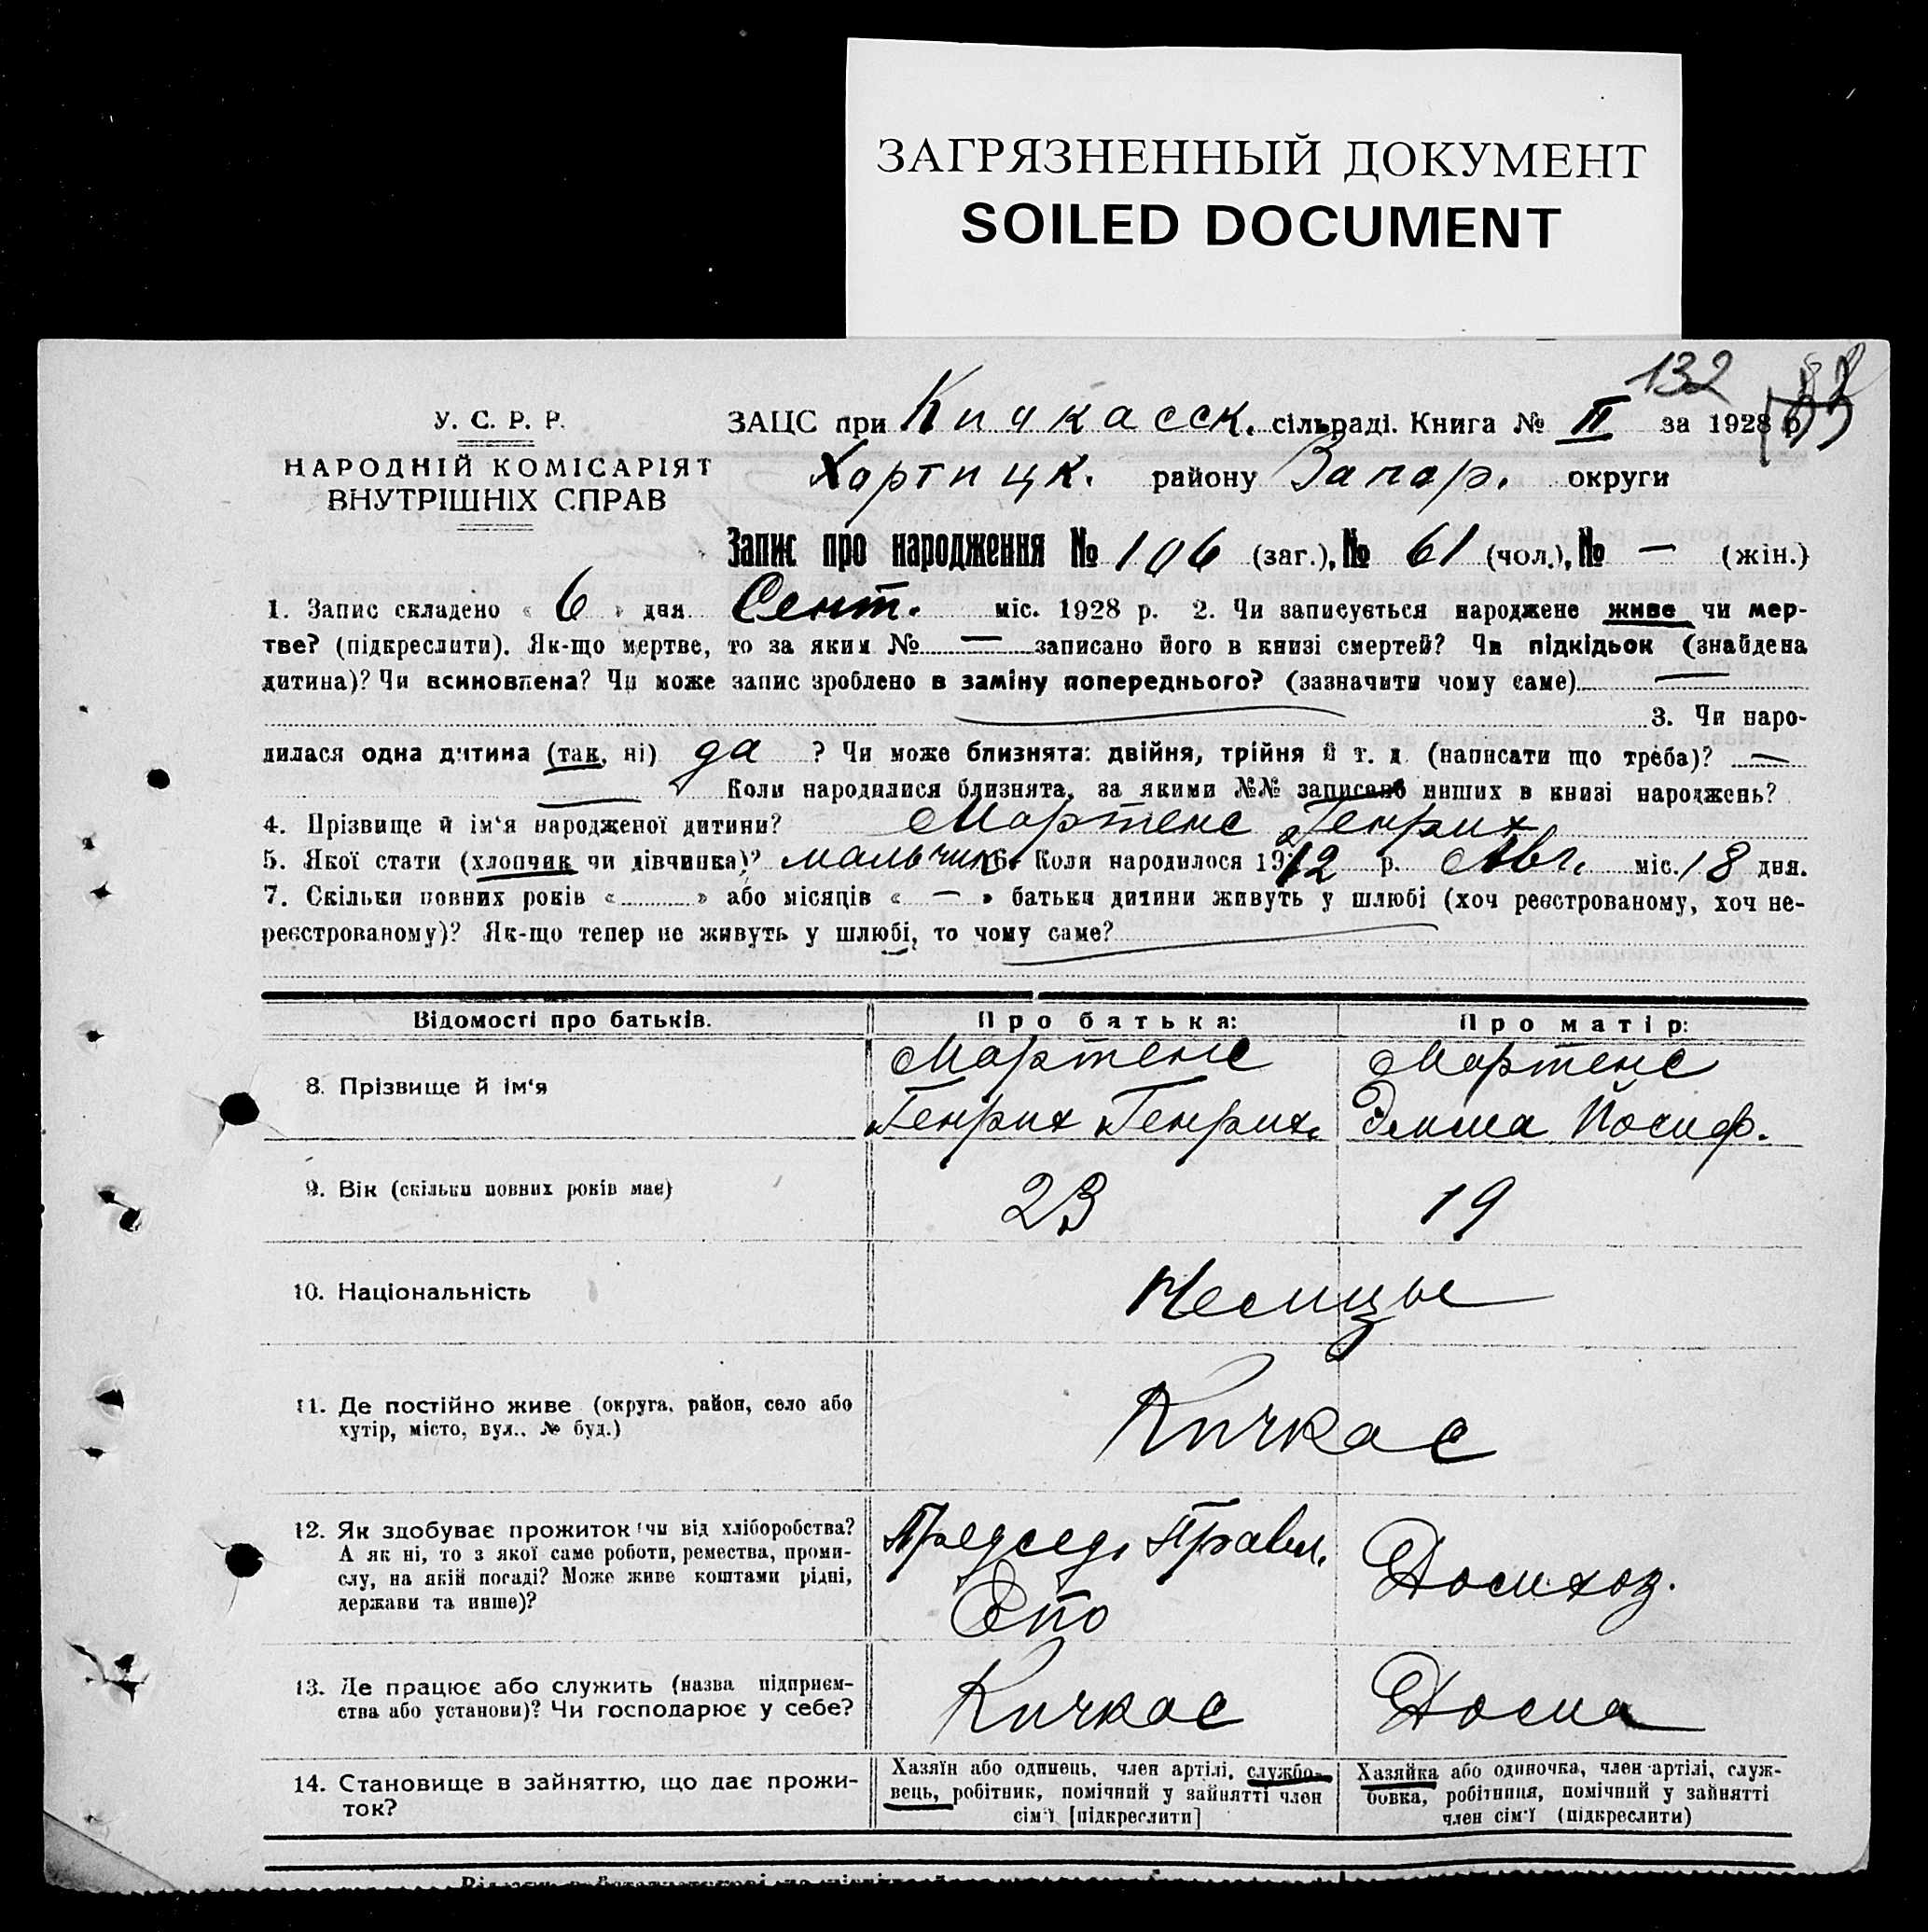 ЗАГРЯЗНЕННЫЙ ДОКУМЕНТ
SOILED DOCUMENT
132
У. С. Р. Р.
НАРОДНІЙ КОМІСАРІЯТ
ВНУТРІШНІХ СПРАВ
ЗАЦС при Кичкасск. сільраді. Книга № II за 1928 р
Хортицк. району Запор. округи
Запис про народження № 106 (заг.), № 61 (чол.), № — (жін.)
1. Запис складено « 6 » дня Сент. міс. 1928 р. 2. Чи записується народжене живе чи мер-
тве? (підкреслити). Як-що мертве, то за яким № — записано його в книзі смертей? Чи підкідьок (знайдена
дитина)? Чи всиновлена? Чи може запис зроблено в заміну попереднього? (зазначити чому саме) —
3. Чи наро-
дилася одна дитина (так, ні) да ? Чи може близнята: двійня, трійня й т. д. (написати що треба)? —
Коли народилися близнята, за якими №№ записано инших в книзі народжень?
4. Прізвище й ім‘я народженої дитини? Мартенс Генрих
5. Якої стати (хлопчик чи дівчинка)? мальчик 6. Коли народилося 19 р. Авг. міс. 18 дня.
7. Скільки повних років « » або місяців « — » батьки дитини живуть у шлюбі (хоч реєстрованому, хоч не-
реєстрованому)? Як-що тепер не живуть у шлюбі, то чому саме?
Відомості про батьків.
Про батька:
Про матір:
8. Прізвище й ім‘я
Мартенс
Генрих Генрих.
Мартенс
Эмма Йосиф.
9. Вік (скільки повних років має)
23
19
10. Національність
Немцы
11. Де постійно живе (округа, район, село або
хутір, місто, вул., № буд.)
Кичкас
12. Як здобуває прожиток (чи від хліборобства?
А як ні, то з якої саме роботи, ремества, проми-
слу, на якій посаді? Може живе коштами рідні,
держави та инше)?
Председ. Правл.
Епо
Домихоз.
13. Де працює або служить (назва підприєм-
ства або установи)? Чи господарює у себе?
Кичкас
Дома
14. Становище в зайняттю, що дає прожи-
ток?
Хазяїн або одинець, член артілі, службо-
вець, робітник, помічний у зайнятті член
сім‘ї [підкреслити]
Хазяйка або одиночка, член артілі, служ-
бовка, робітниця, помічний у зайнятті
член сім‘ї (підкреслити)